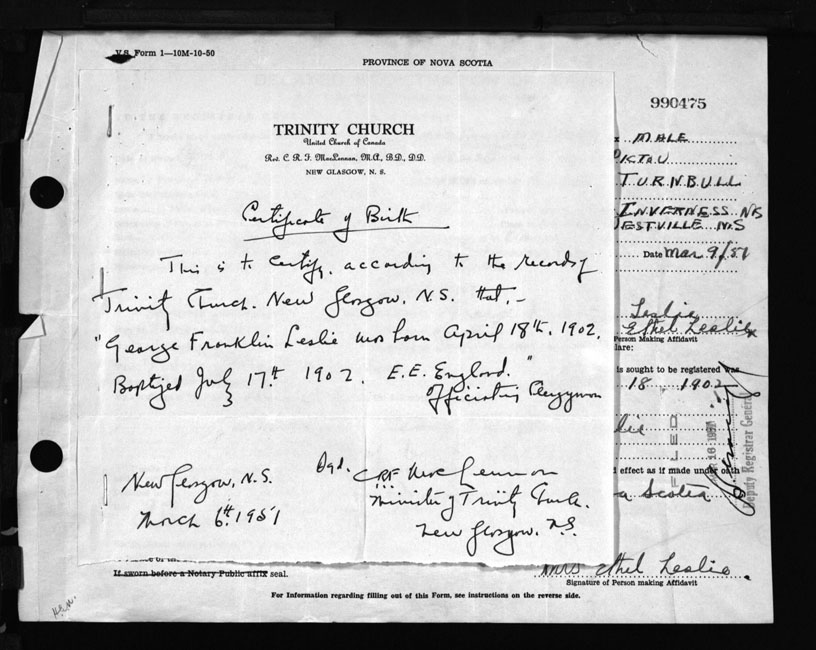 V.S. Form 1—10M-10-50
PROVINCE OF NOVA SCOTIA
990475
TRINITY CHURCH
United Church of Canada
Rev. C. R. F. MacLennan, M.A., B.D., D.D.
NEW GLASGOW, N. S.
Certificate of Birth
This is to certify, according to the records of
Trinity Church. New Glasgow. N.S. that, -
"George Franklin Leslie was born April 18th. 1902.
Baptized July 17th 1902. E.E. England."
Officiating Clergyman
New Glasgow, N.S.
March 6th. 1951
Sgd. C.R.F. MacLennan
Minister of Trinity Church.
New Glasgow. N.S.
MALE
TURNBULL
INVERNESS NS
ESTVILLE N.S
Date Mar 9/51
Leslie
Ethel Leslie
Person Making Affidavit
lare:
is sought to be registered was
18 1902
lie
FILED
Deputy Registrar General
d effect as if made under oath
a Scotia
If sworn before a Notary Public affix seal.
Mrs Ethel Leslie
Signature of Person making Affidavit
For Information regarding filling out of this Form, see instructions on the reverse side.